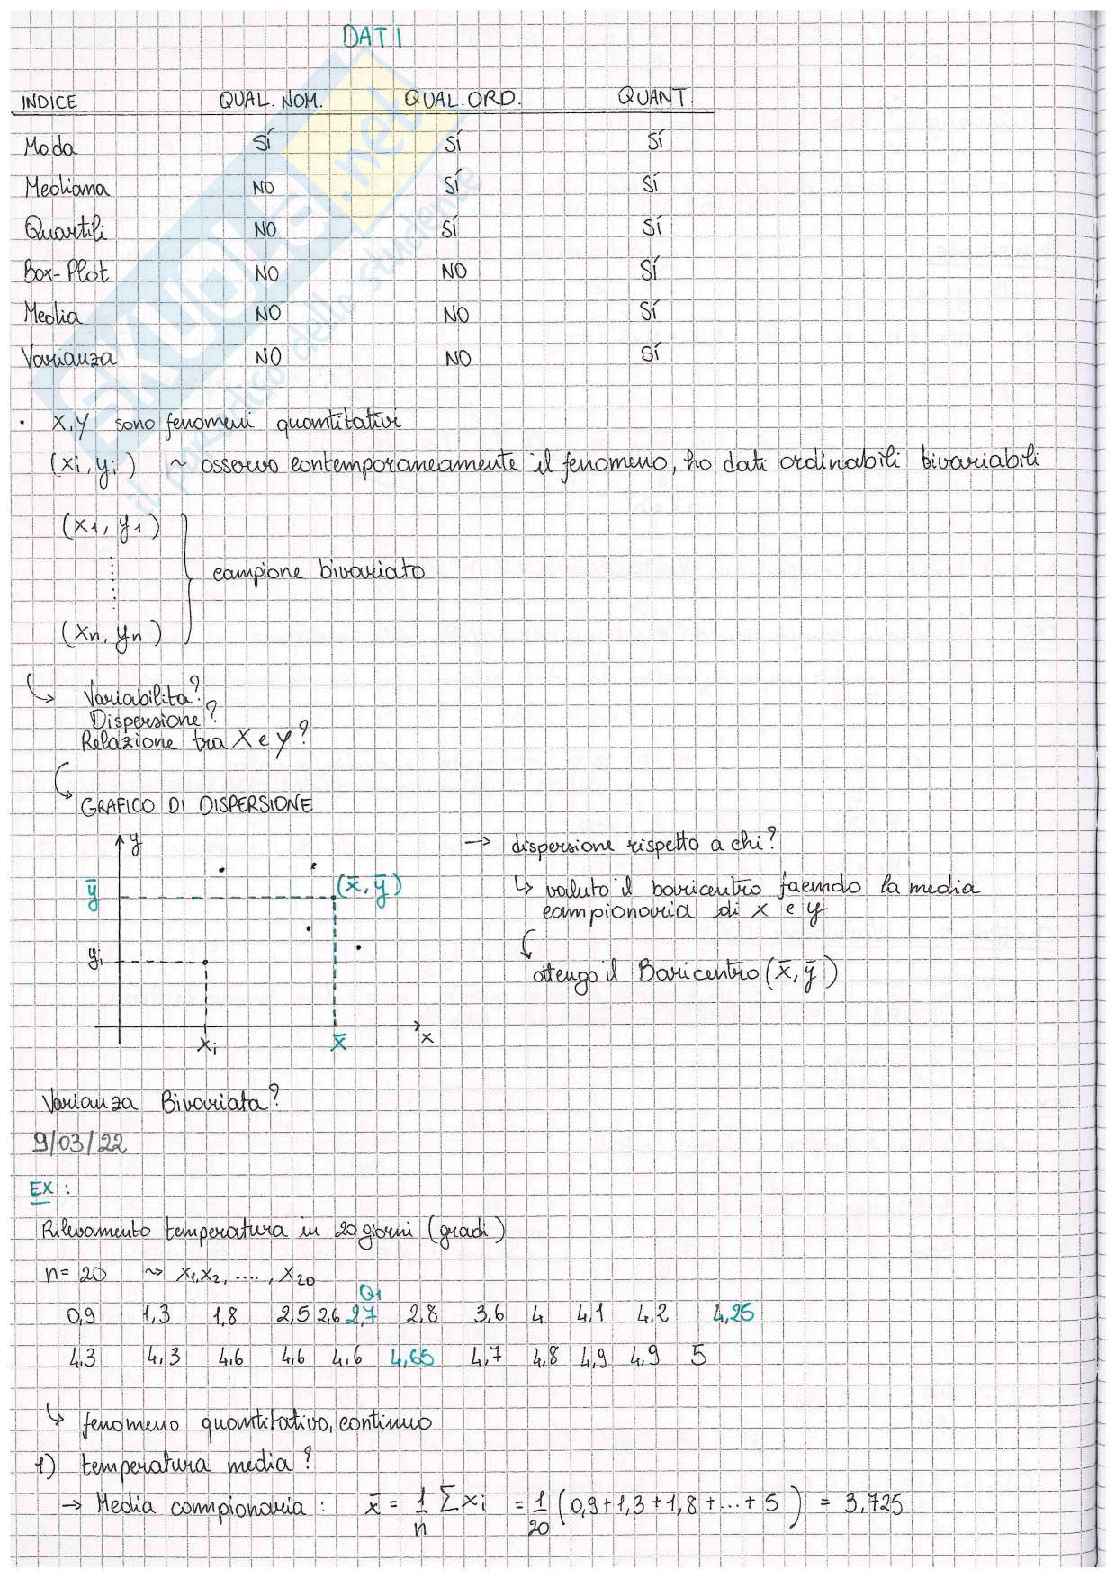 DATI
INDICE QUAL. NOM. QUAL. ORD. QUANT.
Moda SÍ SÍ SÍ
Mediana NO SÍ SÍ
Quartili NO SÍ SÍ
Box-Plot NO NO SÍ
Media NO NO SÍ
Varianza NO NO SÍ
· x,y sono fenomeni quantitativi
(xi, yi) ~ osservo contemporaneamente il fenomeno, ho dati ordinabili bivariabili
(x1, y1)
campione bivariato
(xn, yn)
↳ Variabilità?
Dispersione?
Relazione tra x e y?
↳ GRAFICO DI DISPERSIONE
y
ȳ
(x̄, ȳ)
yi
xi x̄ x
→ dispersione rispetto a chi?
↳ valuto il baricentro facendo la media
campionaria di x e y
↳ ottengo il Baricentro (x̄, ȳ)
Varianza Bivariata?
9/03/22
EX:
Rilevamento temperatura in 20 giorni (gradi)
n= 20 ~> x1, x2, ...., x20
Q1
0,9 1,3 1,8 2,5 2,6 2,7 2,8 3,6 4 4,1 4,2 4,25
4,3 4,3 4,6 4,6 4,6 4,65 4,7 4,8 4,9 4,9 5
↳ fenomeno quantitativo, continuo
1) temperatura media?
→ Media campionaria: x̄ = 1/n Σ xi = 1/20 (0,9+1,3+1,8+...+5) = 3,725
SKUOLA.net
il paradiso dello studente